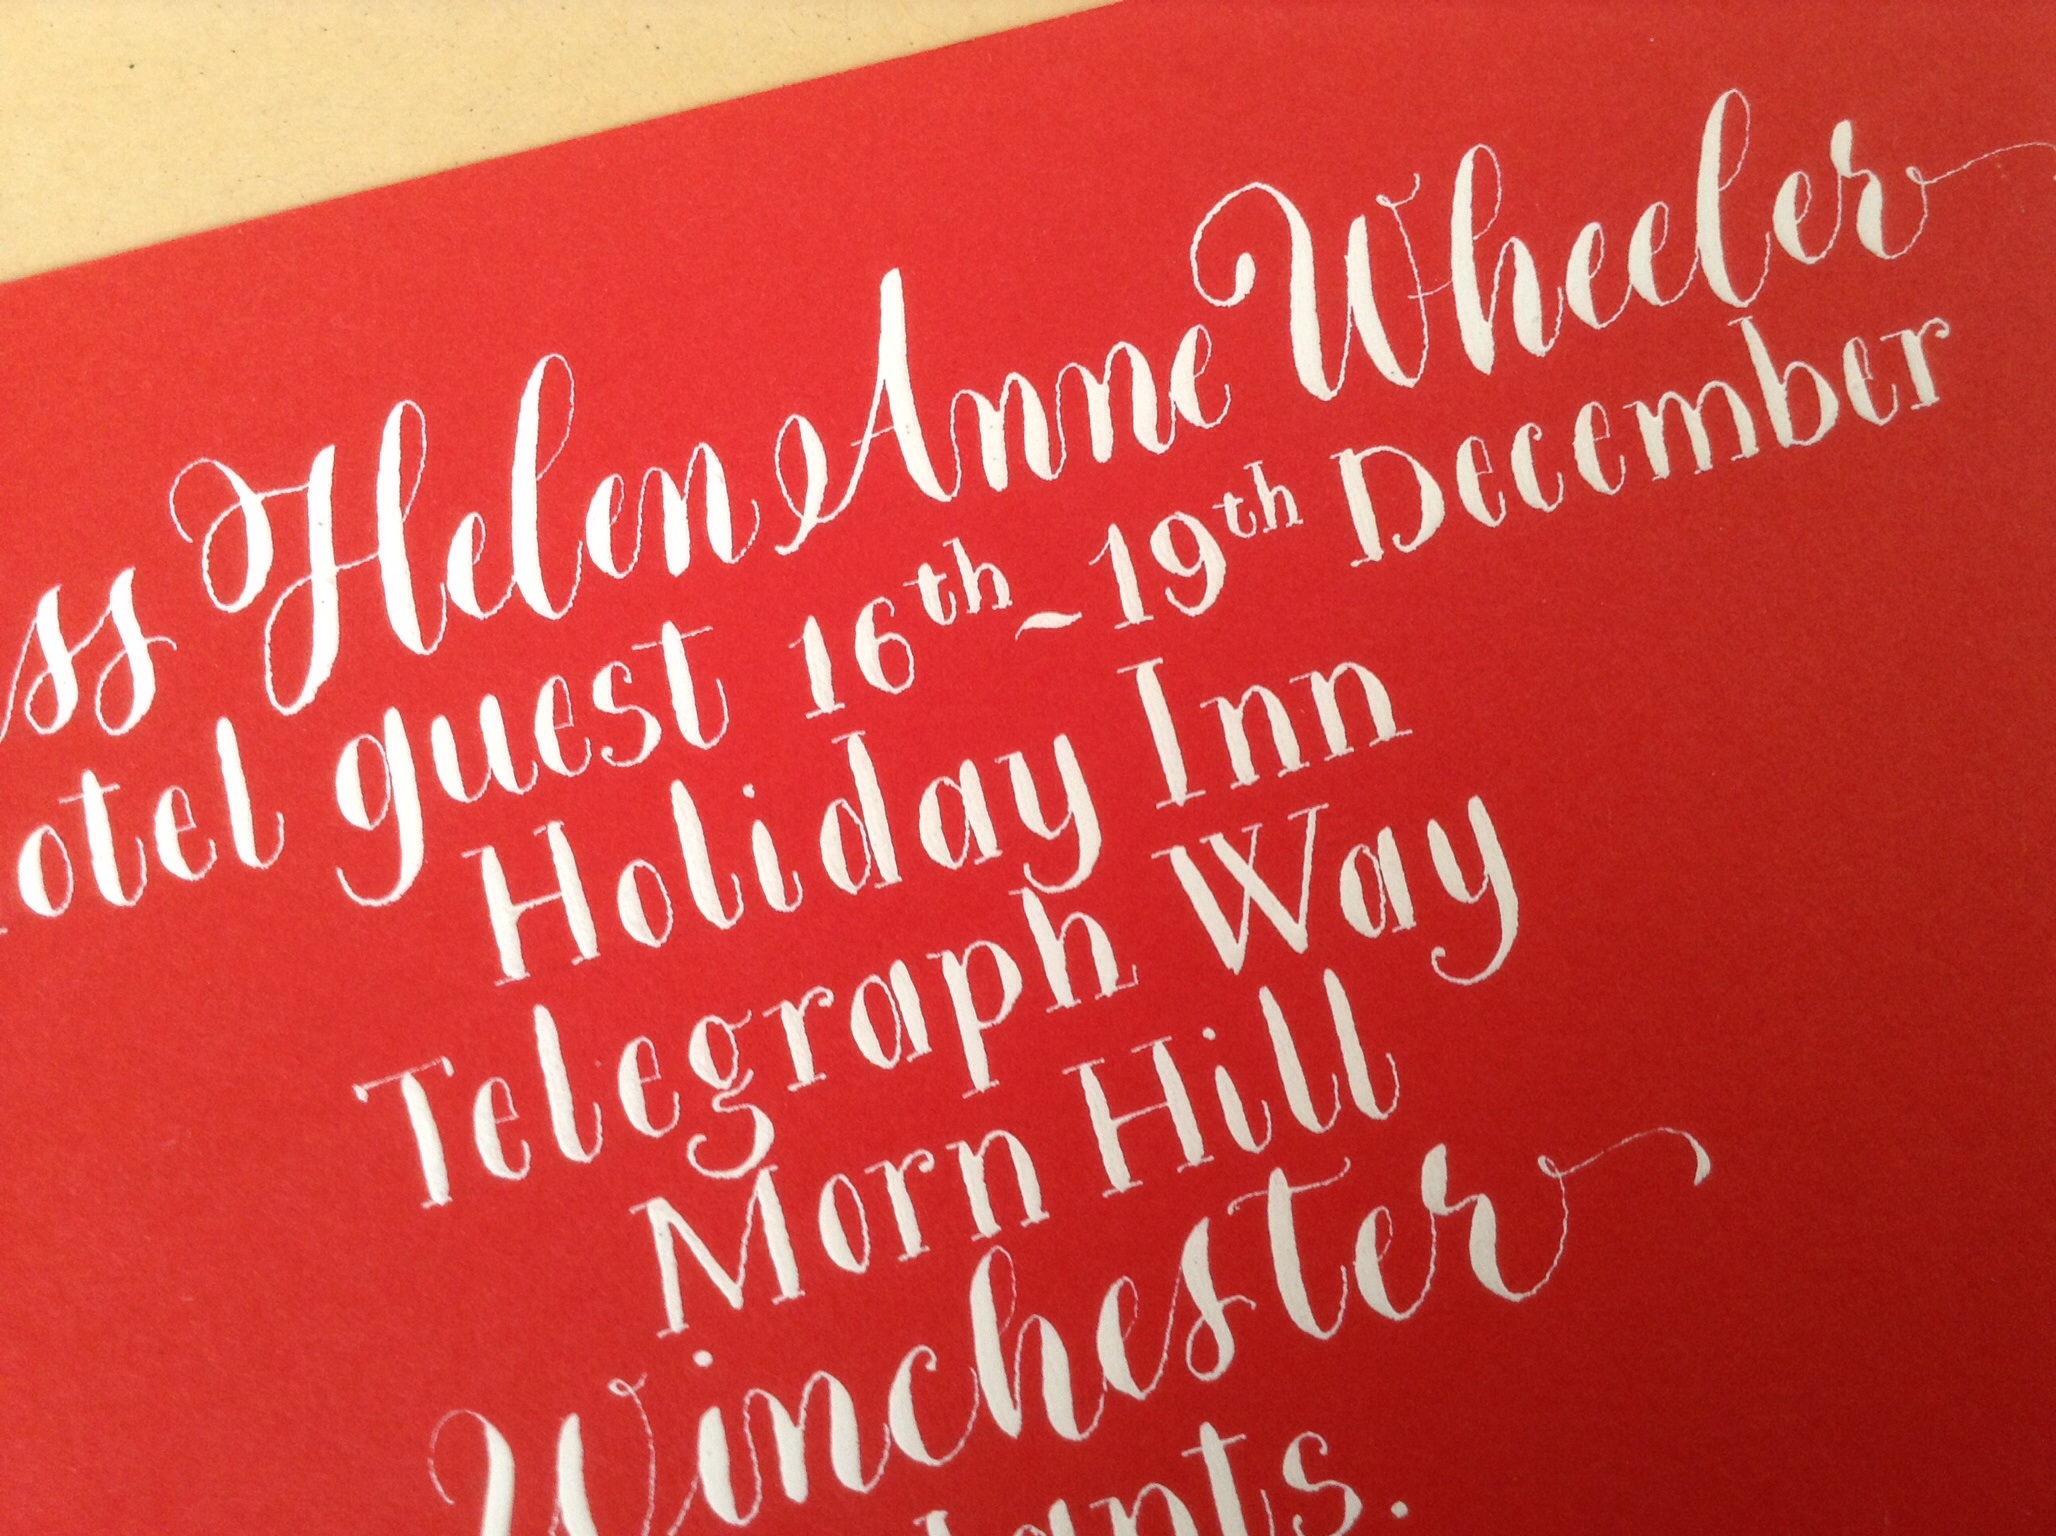 ss Helen Anne Wheeler
otel guest 16th~19th December
Holiday Inn
Telegraph Way
Morn Hill
Winchester
ants.